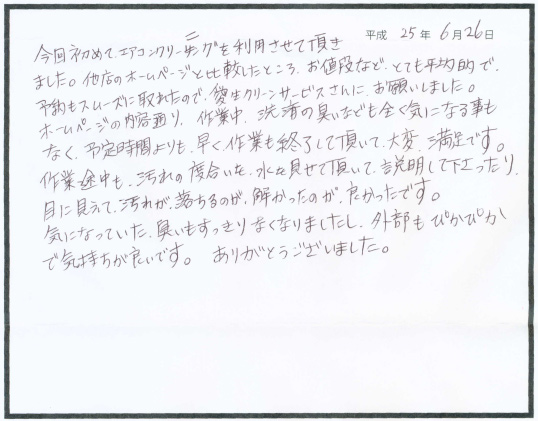 平成 25年 6月26日
今回初めて、エアコンクリーニングを利用させて頂き
ました。他店のホームページと比較したところ、お値段など、とても平均的で、
予約もスムーズに取れたので、愛生クリーンサービスさんに、お願いしました。
ホームページの内容通り、作業中、洗済の臭いなども全く気になる事も
なく、予定時間よりも、早く作業も終了して頂いて、大変、満足です。
作業途中も、汚れの度合いを、水を見せて頂いて、説明して下さったり、
目に見えて、汚れが、落ちるのが、解かったのが、良かったです。
気になっていた、臭いもすっきりなくなりましたし、外部もぴかぴか
で気持ちが良いです。 ありがとうございました。